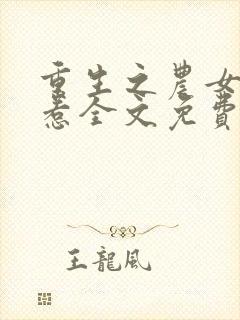 重生之農女
惹全文免費
王龍風